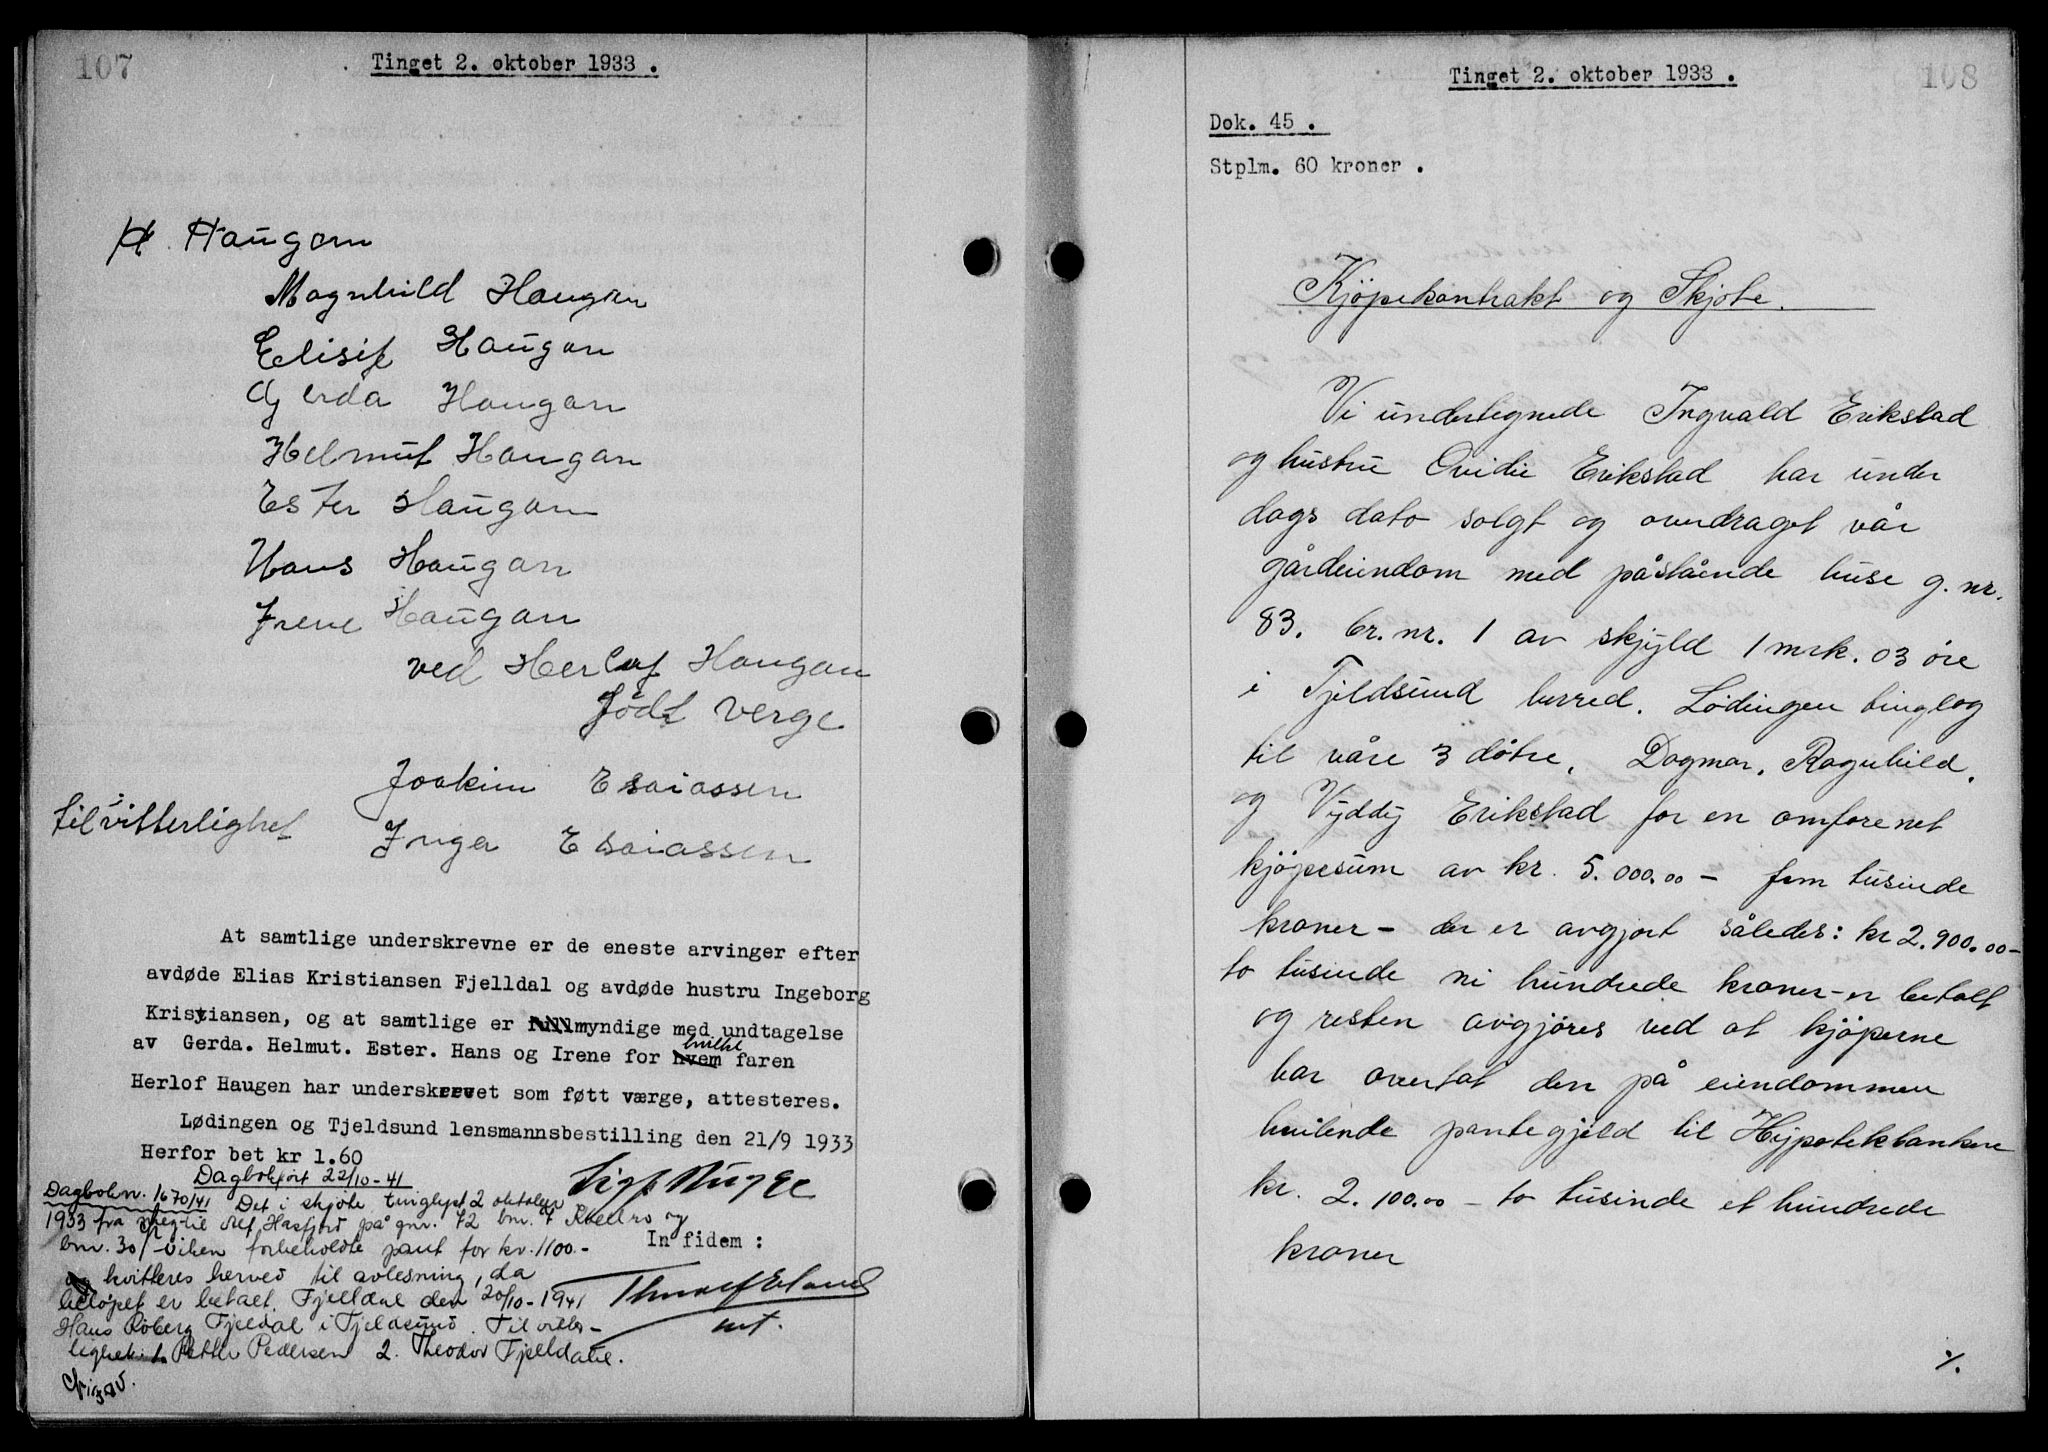 107
Tinget 2. oktober 1933 .
Haugan
Magnhild Haugan
Elisif Haugan
Gjerda Haugan
Helmut Haugan
Ester Haugan
Hans Haugan
Irene Haugan
ved Herlof Haugan
født verge
Joakim Esaiassen
til vitterlighet
Inga Esaiassen
At samtlige underskrevne er de eneste arvinger efter
avdøde Elias Kristiansen Fjelldal og avdøde hustru Ingeborg
Kristiansen, og at samtlige er myndige med undtagelse
av Gerda. Helmut. Ester. Hans og Irene for hvilke faren
Herlof Haugen har underskrevet som føtt værge, attesteres.
Lødingen og Tjeldsund lensmannsbestilling den 21/9 1933
Herfor bet kr 1.60
Dagbokført 22/10-41
Dagbokn. 1670/41 Det i skjøte tinglyst 2 oktober
1933 fra meg til Alf Hasfjord på gnr. 72 bnr. 7 og
bnr. 30 forbeholdte pant for kr. 1100.-
kvitteres herved til avlesning, da
beløpet er betalt. Fjelldal den 20/10-1941
Hans Fjeldal i Tjeldsund. Til vitter-
lighet: 1. Petter Pedersen 2. Theodor Fjelldal.
In fidem :
108
Tinget 2. oktober 1933 .
Dok. 45 .
Stplm. 60 kroner .
Kjøpekontrakt og Skjøte.
Vi undertegnede Ingvald Erikstad
og hustru Ovidie Erikstad har under
dags dato solgt og overdraget vår
gårdeiendom med påstående huse g. nr.
83. br. nr. 1 av skjyld 1 mrk. 03 öre
i Tjeldsund herred. Lödingen tinglag
til våre 3 døtre, Dagmar, Ragnhild,
og Vyddy Erikstad for en omforenet
kjøpesum av kr. 5.000.00 - fem tusinde
kroner - der er avgjort således: kr 2.900.00 -
to tusinde ni hundrede kroner - er betalt
og resten avgjøres ved at kjøperne
har overtat den på eiendommen
hvilende pantegjeld til Hypotekbanken
kr. 2.100.00 - to tusinde et hundrede
kroner
%.